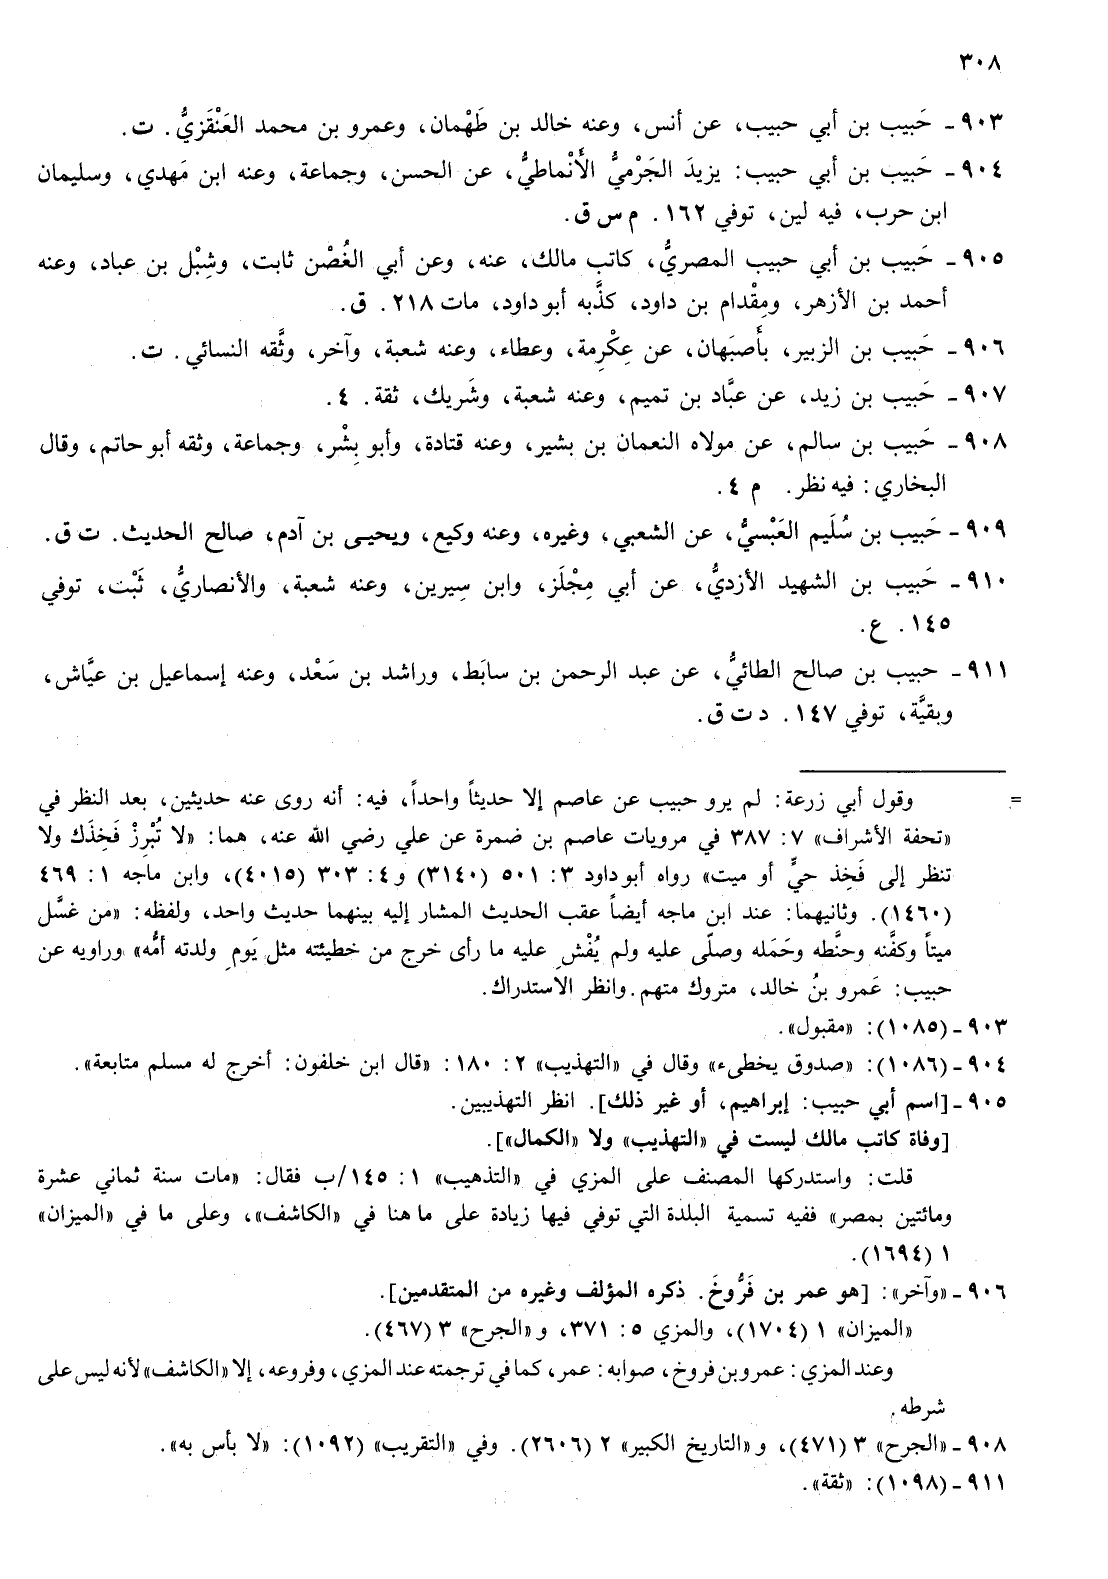 ٣٠٨
٩٠٣ - حَبيب بن أبي حبيب، عن أنس، وعنه خالد بن طَهْمان، وعمرو بن محمد العَنْقَزيُّ. ت.
٩٠٤ - حَبيب بن أبي حبيب: يزيدَ الجَرْميُّ الأَنْماطيُّ، عن الحسن، وجماعة، وعنه ابن مَهدي، وسليمان
ابن حرب، فيه لين، توفي ١٦٢. م س ق.
٩٠٥ - حَبيب بن أبي حبيب المصريُّ، كاتب مالك، عنه، وعن أبي الغُصْن ثابت، وشِبْل بن عباد، وعنه
أحمد بن الأزهر، ومِقْدام بن داود، كذَّبه أبو داود، مات ٢١٨. ق.
٩٠٦ - حَبيب بن الزبير، بأَصبَهان، عن عِكْرِمة، وعطاء، وعنه شعبة، وآخر، وثَّقه النسائي. ت.
٩٠٧ - حَبيب بن زيد، عن عبَّاد بن تميم، وعنه شعبة، وشَريك، ثقة. ٤.
٩٠٨ - حَبيب بن سالم، عن مولاه النعمان بن بشير، وعنه قتادة، وأبو بِشْر، وجماعة، وثقه أبو حاتم، وقال
البخاري: فيه نظر. م ٤.
٩٠٩ - حَبيب بن سُلَيم العَبْسيُّ، عن الشعبي، وغيره، وعنه وكيع، ويحيى بن آدم، صالح الحديث. ت ق.
٩١٠ - حَبيب بن الشهيد الأزديُّ، عن أبي مِجْلَز، وابن سِيرين، وعنه شعبة، والأنصاريُّ، ثَبْت، توفي
١٤٥. ع.
٩١١ - حبيب بن صالح الطائيُّ، عن عبد الرحمن بن سابَط، وراشد بن سَعْد، وعنه إسماعيل بن عيَّاش،
وبقيَّة، توفي ١٤٧. د ت ق.
= وقول أبي زرعة: لم يرو حبيب عن عاصم إلا حديثاً واحداً، فيه: أنه روى عنه حديثين، بعد النظر في
«تحفة الأشراف» ٧: ٣٨٧ في مرويات عاصم بن ضمرة عن علي رضي الله عنه، هما: «لا تُبْرِزْ فَخِذَك ولا
تنظر إلى فَخِذ حيٍّ أو ميت» رواه أبو داود ٣: ٥٠١ (٣١٤٠) و ٤: ٣٠٣ (٤٠١٥)، وابن ماجه ١: ٤٦٩
(١٤٦٠). وثانيهما: عند ابن ماجه أيضاً عقب الحديث المشار إليه بينهما حديث واحد، ولفظه: «من غسَّل
ميتاً وكفَّنه وحنَّطه وحَمَله وصلّى عليه ولم يُفْشِ عليه ما رأى خرج من خطيئته مثل يَومِ ولدته أمُّه» وراويه عن
حبيب: عَمرو بنُ خالد، متروك متهم. وانظر الاستدراك.
٩٠٣ - (١٠٨٥): «مقبول».
٩٠٤ - (١٠٨٦): «صدوق يخطىء» وقال في «التهذيب» ٢: ١٨٠: «قال ابن خلفون: أخرج له مسلم متابعة».
٩٠٥ - [اسم أبي حبيب: إبراهيم، أو غير ذلك]. انظر التهذيبين.
[وفاة كاتب مالك ليست في «التهذيب» ولا «الكمال»].
قلت: واستدركها المصنف على المزي في «التذهيب» ١: ١٤٥/ب فقال: «مات سنة ثماني عشرة
ومائتين بمصر» ففيه تسمية البلدة التي توفي فيها زيادة على ما هنا في «الكاشف»، وعلى ما في «الميزان»
١ (١٦٩٤).
٩٠٦ - «وآخر»: [هو عمر بن فَرُّوخَ. ذكره المؤلف وغيره من المتقدمين].
«الميزان» ١ (١٧٠٤)، والمزي ٥: ٣٧١، و «الجرح» ٣ (٤٦٧).
وعند المزي: عمرو بن فروخ، صوابه: عمر، كما في ترجمته عند المزي، وفروعه، إلا «الكاشف» لأنه ليس على
شرطه.
٩٠٨ - «الجرح» ٣ (٤٧١)، و «التاريخ الكبير» ٢ (٢٦٠٦). وفي «التقريب» (١٠٩٢): «لا بأس به».
٩١١ - (١٠٩٨): «ثقة».